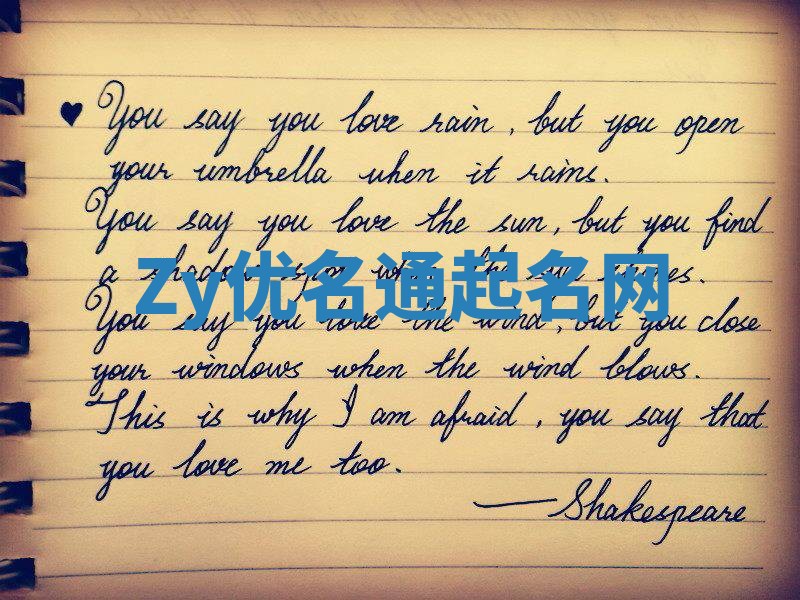 You say you love rain, but you open
your umbrella when it rains.
You say you love the sun, but you find
a shadow spot when the sun shines.
Zy优名通起名网
You say you love the wind, but you close
your windows when the wind blows.
This is why I am afraid, you say that
you love me too.
—Shakespeare